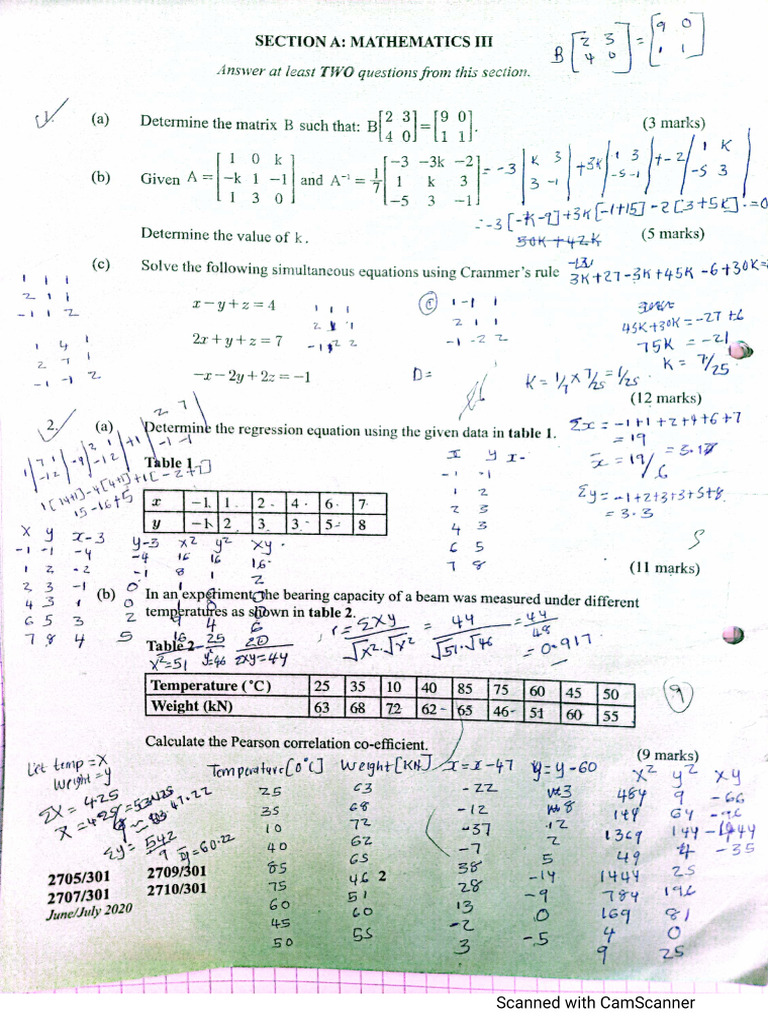 SECTION A: MATHEMATICS III
Answer at least TWO questions from this section.
B [2 3 4 0] = [9 0 1 1]
1.
(a) Determine the matrix B such that: B[2 3 4 0] = [9 0 1 1]. (3 marks)
(b) Given A = [1 0 k −k 1 −1 1 3 0] and A⁻¹ = 1/7 [−3 −3k −2 1 k 3 −5 3 −1]
= -3 |K 3 3 -1| +3K |1 3 -5 -1| + -2 |1 K -5 3|
= -3[-K-9]+3K[-1+15]-2[3+5K] = 0
Determine the value of k. (5 marks)
30K + 42K
(c) Solve the following simultaneous equations using Crammer's rule
3K+27-3K+45K-6+30K=
x − y + z = 4
2x + y + z = 7
−x − 2y + 2z = −1
1 1 1
2 1 1
-1 1 2
1 4 1
2 7 1
-1 -1 2
1 -1 1
2 1 1
-1 -2 2
D=
45K+30K = -27+6
75K = -21
K = 7/25
K = 1/7 × 7/25 = 1/25
(12 marks)
2. (a) Determine the regression equation using the given data in table 1.
1[14+1]-4[4+1]+1[-2+7]
15-16+5
Σx = -1+1+2+4+6+7
= 19
x̄ = 19/6 = 3.17
Σy = -1+2+3+3+5+8
= 3.3
x y x-
-1 -1
1 2
2 3
4 3
6 5
7 8
Table 1
x −1 1 2 4 6 7
y −1 2 3 3 5 8
(11 marks)
X Y x-3 y-3 x² y² xy
-1 -1 -4 -4 16 16 16
1 2 -2 -1 8 1 2
2 3 -1 0 1 0
4 3 1 0
6 5 3 2 9 4 6
7 8 4 5 16 25 20
x²=51 y²=46 Σxy=44
(b) In an experiment, the bearing capacity of a beam was measured under different
temperatures as shown in table 2.
r = Σxy/√x².√y² = 44/√51.√46 = 44/48
= 0.917
Table 2
Temperature (°C) 25 35 10 40 85 75 60 45 50
Weight (kN) 63 68 72 62 65 46 51 60 55
9
Calculate the Pearson correlation co-efficient.
(9 marks)
Let temp = X
Weight = y
ΣX = 425
47.22
Σy = 542
ȳ = 60.22
Temperature[0°C] Weight[KN] x=x-47 y=y-60 x² y² xy
25 63 -22 3 484 9 -66
35 68 -12 8 144 64 -96
10 72 -37 12 1369 144 -444
40 62 -7 2 49 4 -35
85 65 38 5 1444 25
75 46 28 -14 784 196
60 51 13 -9 169 81
45 60 -2 0 4 0
50 55 3 -5 9 25
2705/301 2709/301
2707/301 2710/301
June/July 2020
2
Scanned with CamScanner